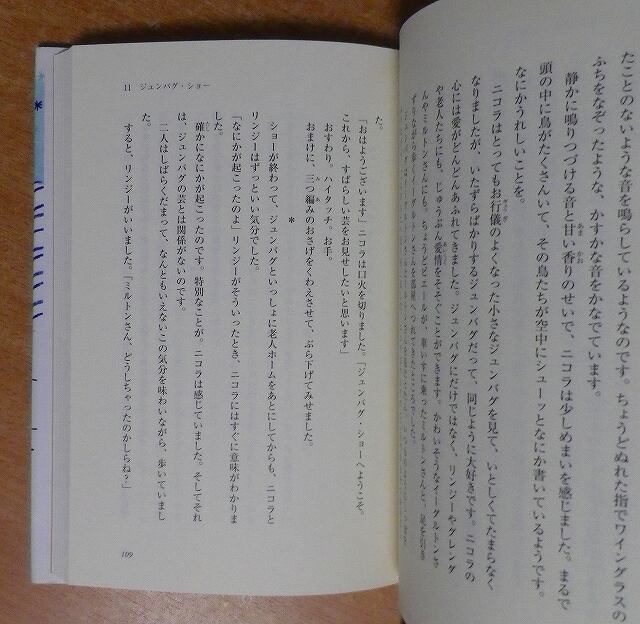 たことのないような音を鳴らしているようなのです。ちょうどぬれた指でワイングラスの
ふちをなぞったような、かすかな音をかなでています。
静かに鳴りつづける音と甘い香りのせいで、ニコラは少しめまいを感じました。まるで
頭の中に鳥がたくさんいて、その鳥たちが空中にシューッとなにか書いているようです。
なにかうれしいことを。
ニコラはとってもお行儀のよくなった小さなジュンバグを見て、いとしくてたまらなく
なりましたが、いたずらばかりするジュンバグだって、同じように大好きです。ニコラの
心には愛がどんどんあふれてきました。ジュンバグにだけではなく、リンジーやグレング
や老人たちにも、じゅうぶん愛情をそそぐことができます。かわいそうなイーグルトンさ
んやミルトンさんにも。ちょうどピエールが、車いすに乗ったミルトンさんと、足を引き
ずりながら歩くイーグルトンさんを部屋へつれてきたところでした。
11 ジュンバグ・ショー
た。
「おはようございます」ニコラは口火を切りました。「ジュンバグ・ショーへようこそ。
これから、すばらしい芸をお見せしたいと思います」
おすわり。ハイタッチ。お手。
おまけに、三つ編みのおさげをくわえさせて、ぶら下げてみせました。
*
ショーが終わって、ジュンバグといっしょに老人ホームをあとにしてからも、ニコラと
リンジーはずっといい気分でした。
「なにかが起こったのよ」リンジーがそういったとき、ニコラにはすぐに意味がわかりま
した。
確かになにかが起こったのです。特別なことが。ニコラは感じていました。そしてそれ
は、ジュンバグの芸とは関係がないのです。
二人はしばらくだまって、なんともいえないこの気分を味わいながら、歩いていまし
た。
すると、リンジーがいいました。「ミルトンさん、どうしちゃったのかしらね？」
109